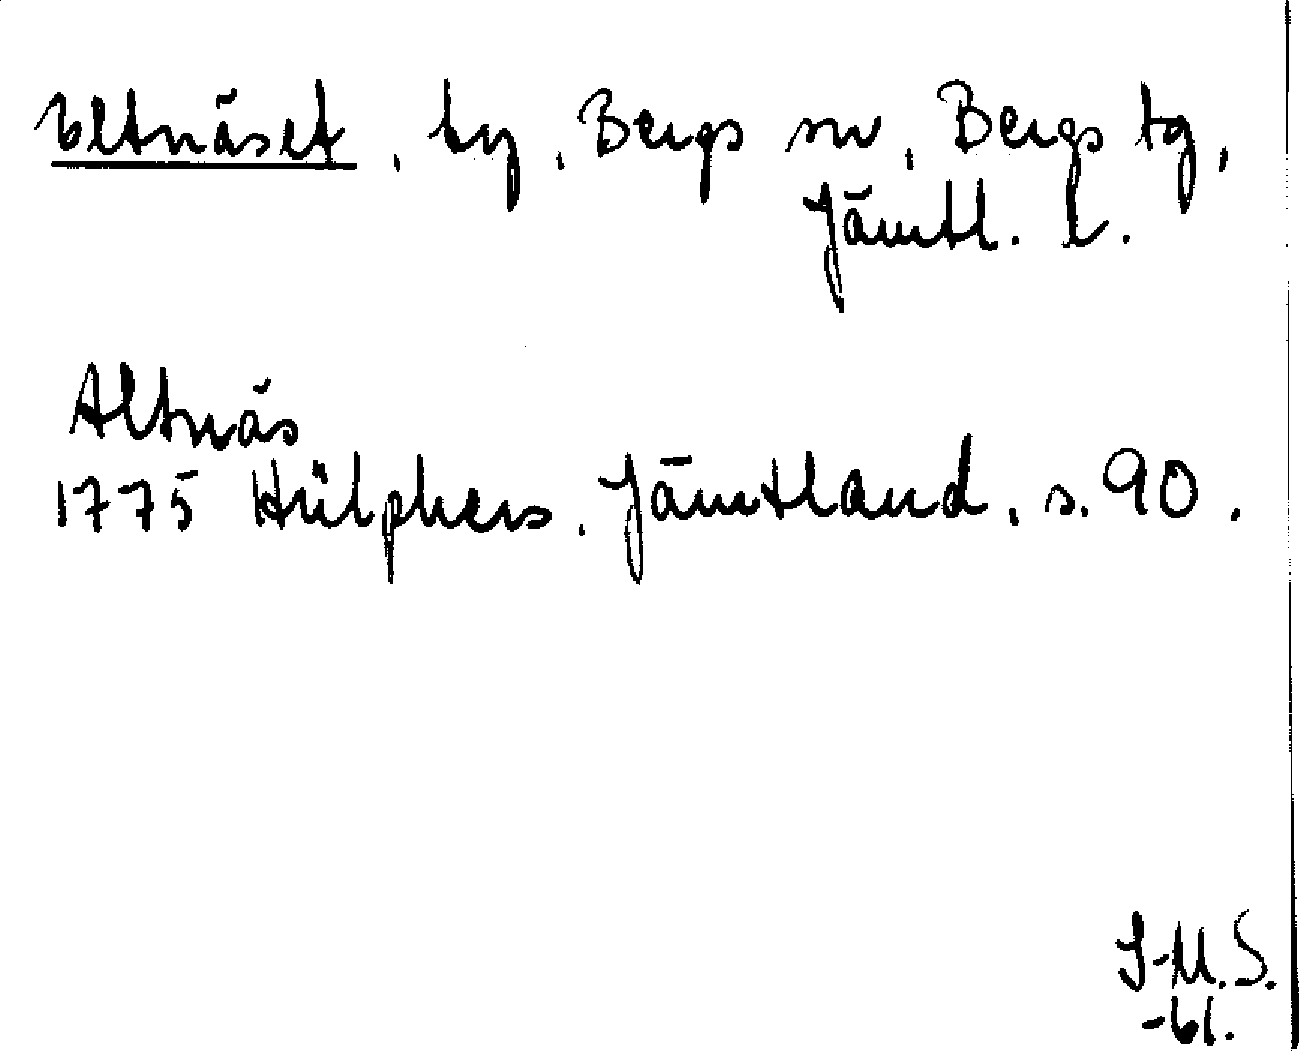 Eltnäset, by, Bergs sn, Bergs tg,
Jämtl. l.
Altnäs
1775 Hülphers. Jämtland, s. 90.
I-M.S.
-61.